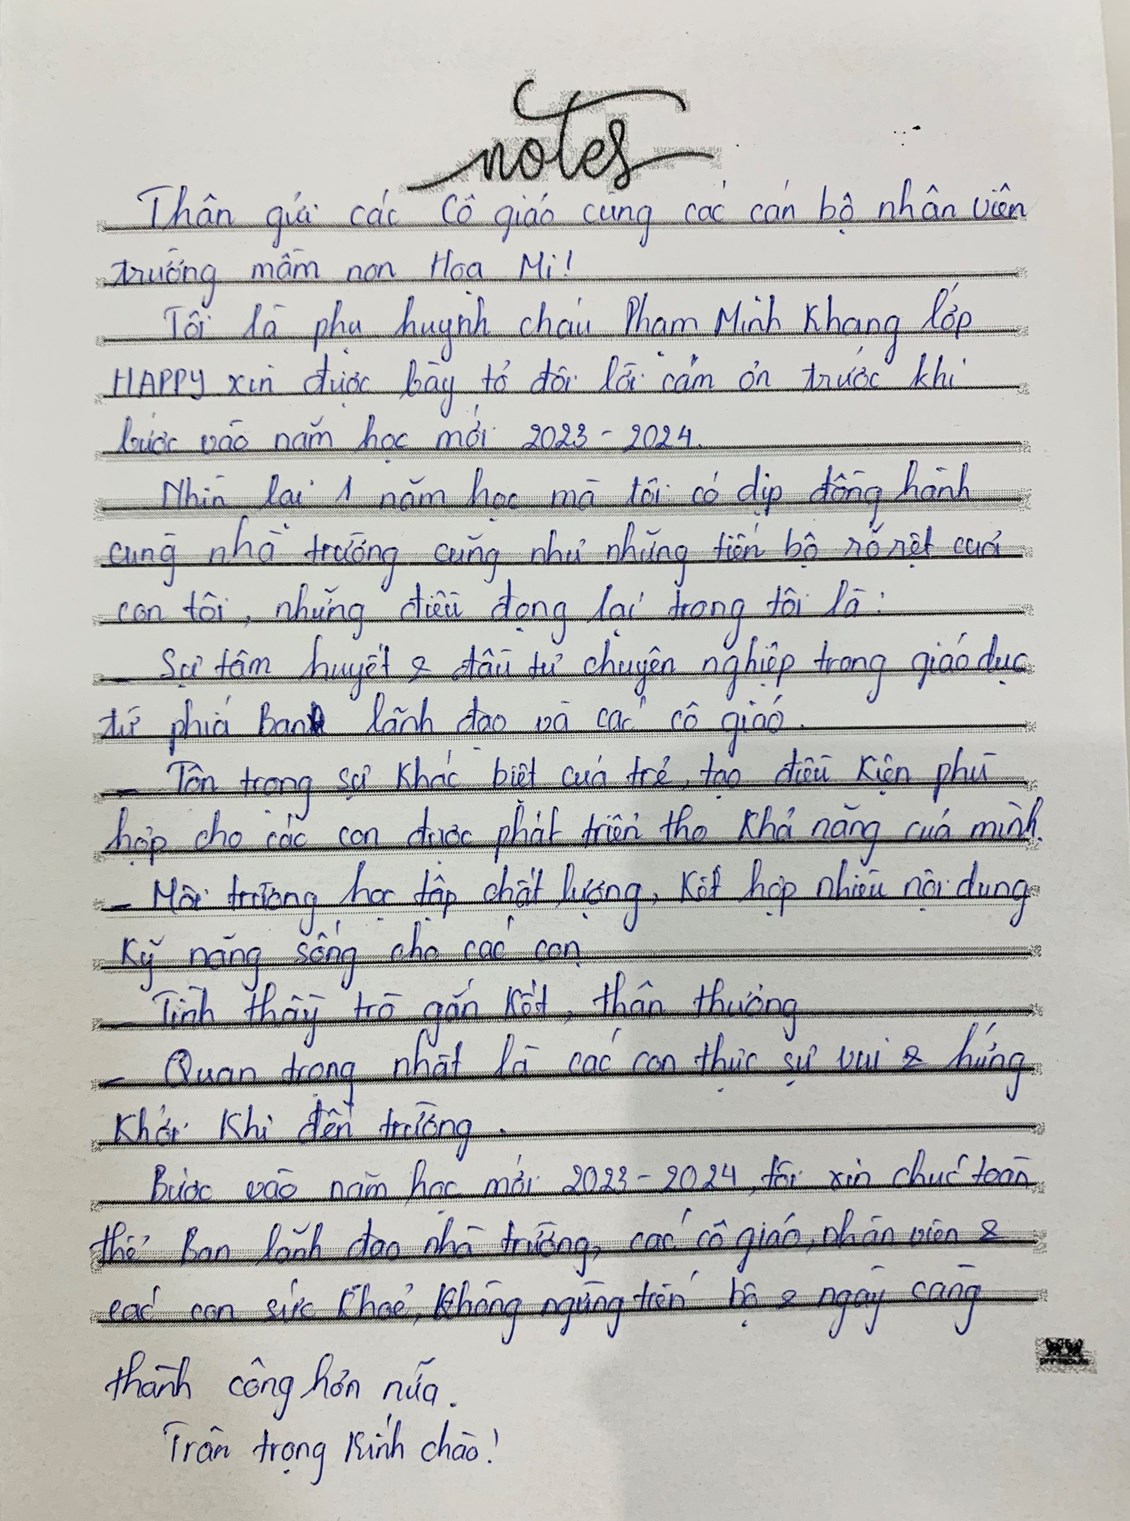 notes
Thân gửi các Cô giáo cùng các cán bộ nhân viên
trường mầm non Hoạ Mi!
Tôi là phụ huynh cháu Phạm Minh Khang lớp
HAPPY xin được bày tỏ đôi lời cảm ơn trước khi
bước vào năm học mới 2023 - 2024.
Nhìn lại 1 năm học mà tôi có dịp đồng hành
cùng nhà trường cũng như những tiến bộ rõ rệt của
con tôi, những điều đọng lại trong tôi là:
- Sự tâm huyết & đầu tư chuyên nghiệp trong giáo dục
từ phía Ban lãnh đạo và các cô giáo.
- Tôn trọng sự khác biệt của trẻ, tạo điều kiện phù
hợp cho các con được phát triển tho khả năng của mình.
- Môi trường học tập chất lượng, kết hợp nhiều nội dung
kỹ năng sống cho các con
- Tình thầy trò gắn kết, thân thương
- Quan trọng nhất là các con thực sự vui & hứng
khởi khi đến trường.
Bước vào năm học mới 2023 - 2024, tôi xin chúc toàn
thể Ban lãnh đạo nhà trường, các cô giáo, nhân viên &
các con sức khoẻ, không ngừng tiến bộ & ngày càng
thành công hơn nữa.
Trân trọng kính chào!